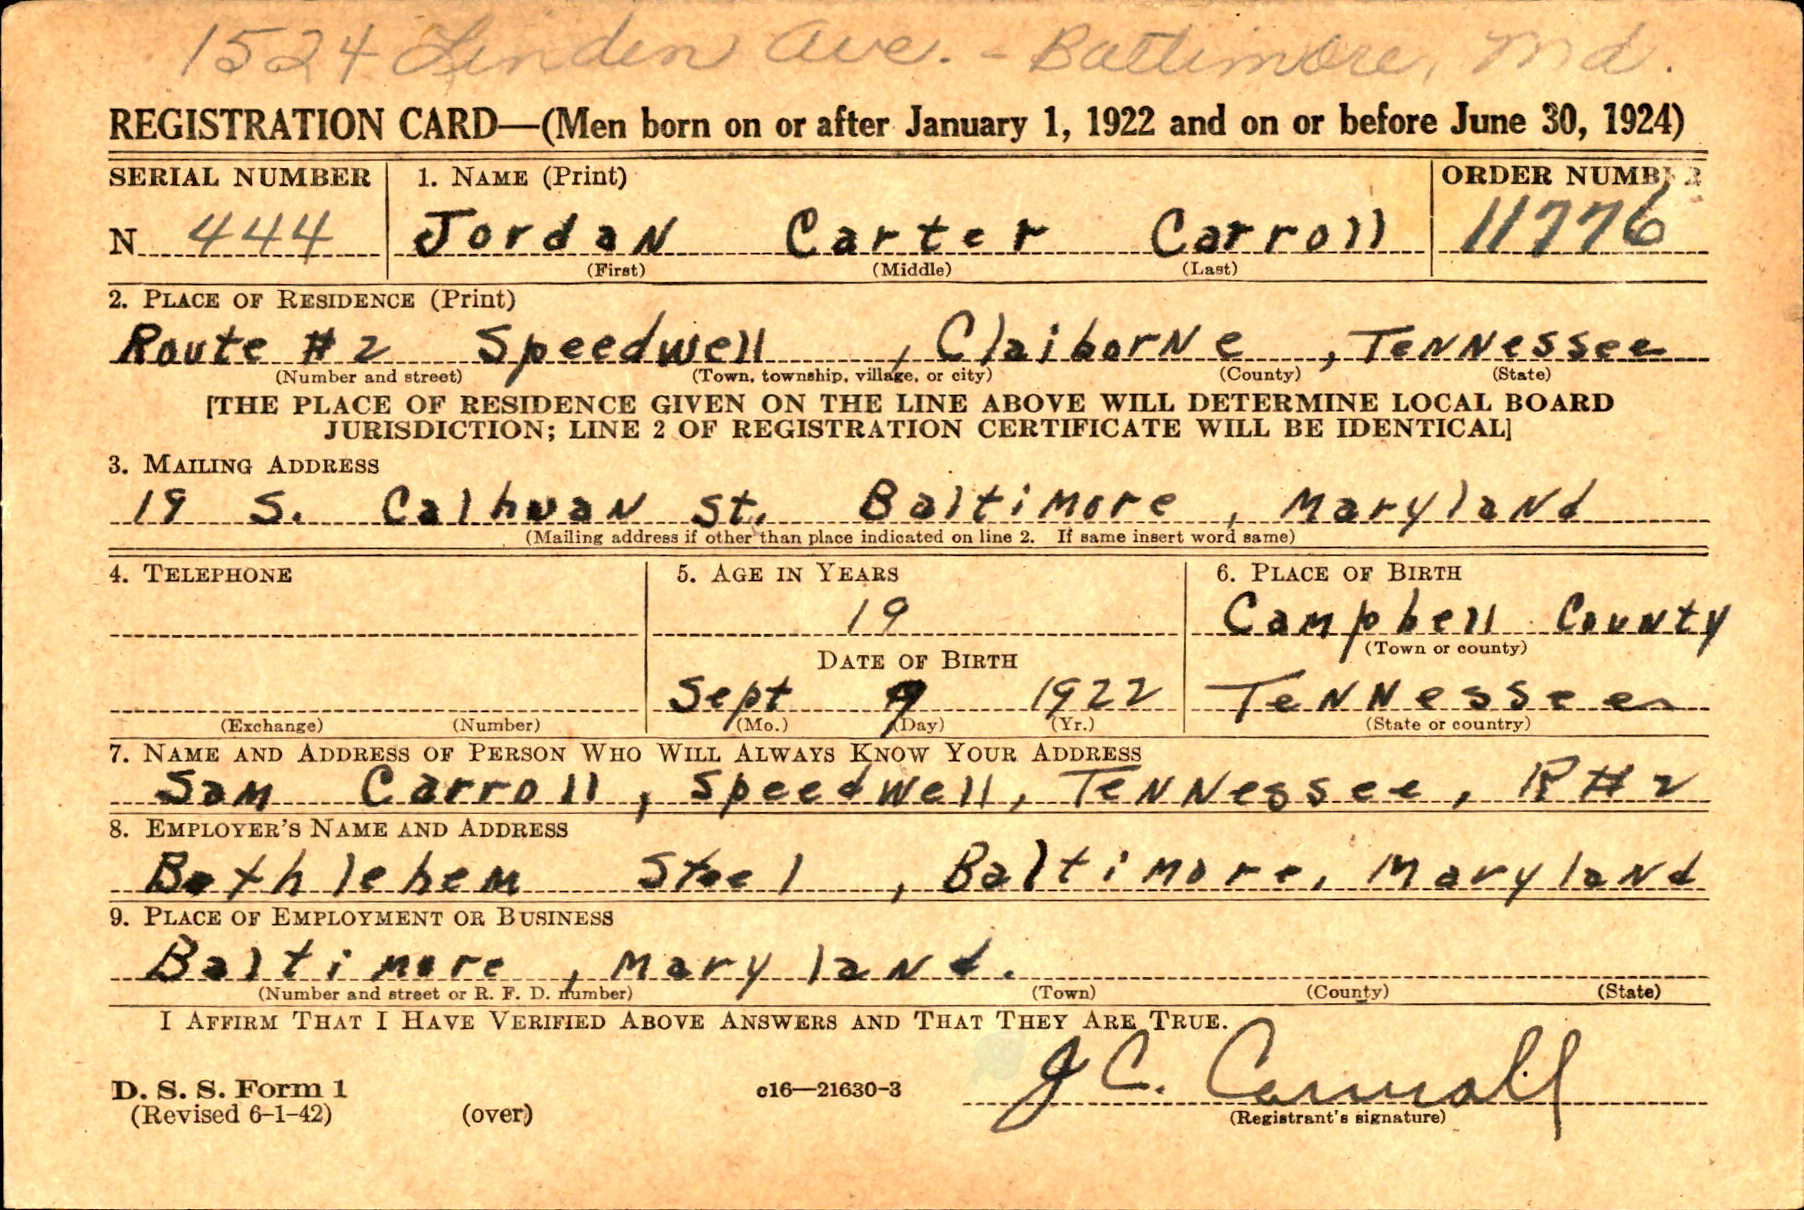 1524 Linden Ave. - Baltimore, Md.
REGISTRATION CARD—(Men born on or after January 1, 1922 and on or before June 30, 1924)
SERIAL NUMBER 1. NAME (Print) ORDER NUMBER
N 444 Jordan Carter Carroll 11776
(First) (Middle) (Last)
2. PLACE OF RESIDENCE (Print)
Route #2 Speedwell, Claiborne, Tennessee
(Number and street) (Town, township, village, or city) (County) (State)
[THE PLACE OF RESIDENCE GIVEN ON THE LINE ABOVE WILL DETERMINE LOCAL BOARD
JURISDICTION; LINE 2 OF REGISTRATION CERTIFICATE WILL BE IDENTICAL]
3. MAILING ADDRESS
19 S. Calhuan St. Baltimore, Maryland
(Mailing address if other than place indicated on line 2. If same insert word same)
4. TELEPHONE 5. AGE IN YEARS 6. PLACE OF BIRTH
19 Campbell County
(Town or county)
DATE OF BIRTH
Sept 9 1922 Tennessee
(Exchange) (Number) (Mo.) (Day) (Yr.) (State or country)
7. NAME AND ADDRESS OF PERSON WHO WILL ALWAYS KNOW YOUR ADDRESS
Sam Carroll, Speedwell, Tennessee, R#2
8. EMPLOYER'S NAME AND ADDRESS
Bethlehem Steel, Baltimore, Maryland
9. PLACE OF EMPLOYMENT OR BUSINESS
Baltimore, Maryland.
(Number and street or R. F. D. number) (Town) (County) (State)
I AFFIRM THAT I HAVE VERIFIED ABOVE ANSWERS AND THAT THEY ARE TRUE.
J C. Carroll
D. S. S. Form 1 c16—21630-3
(Revised 6-1-42) (over) (Registrant's signature)